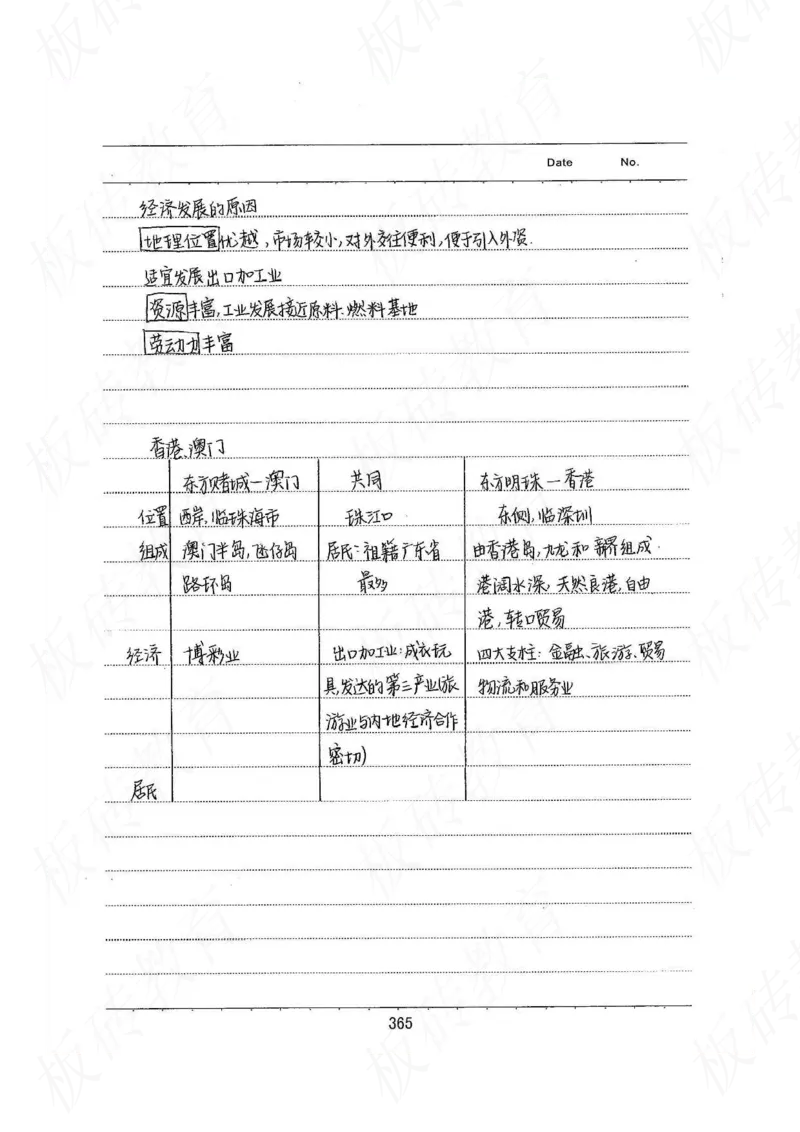 Date No.
经济发展的原因
地理位置优越,市场较小,对外交往便利,便于引入外资.
适宜发展出口加工业
资源丰富,工业发展接近原料、燃料基地
劳动力丰富
香港、澳门
东方赌城—澳门 共同 东方明珠—香港
位置 西岸,临珠海市 珠江口 东侧,临深圳
组成 澳门半岛,氹仔岛 居民:祖籍广东省 由香港岛,九龙和新界组成.
路环岛 最多 港阔水深,天然良港,自由
港,转口贸易
经济 博彩业 出口加工业:成衣玩 四大支柱:金融、旅游、贸易
具,发达的第三产业(旅 物流和服务业
游业与内地经济合作
密切)
居民
365
板砖教育